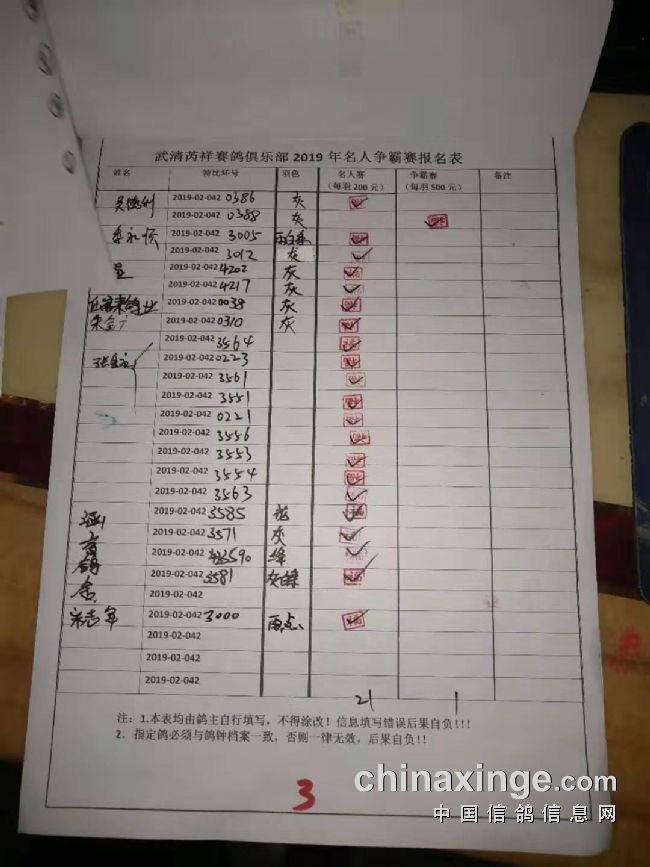 武清芮祥赛鸽俱乐部 2019 年名人争霸赛报名表
姓名 特比环号 羽色 名人赛 争霸赛 备注
（每羽200 元） （每羽500 元）
吴德利 2019-02-042 0386 灰
2019-02-042 0388 灰
2019-02-042 3005 雨白条
2019-02-042 3012 灰
2019-02-042 4202 灰
2019-02-042 4217 灰
2019-02-042 0038 灰
2019-02-042 0310 灰
2019-02-042 3564
2019-02-042 0223
2019-02-042 3561
2019-02-042 3551
2019-02-042 0221
2019-02-042 3556
2019-02-042 3553
2019-02-042 3554
2019-02-042 3563
2019-02-042 3585
2019-02-042 3571 灰
2019-02-042 3590 绛
2019-02-042 3581 灰白条
2019-02-042
宋志军 2019-02-042 3000 雨点
2019-02-042
2019-02-042
2019-02-042
21 1
注：1.本表均由鸽主自行填写，不得涂改！信息填写错误后果自负!!!
2．指定鸽必须与鸽钟档案一致，否则一律无效，后果自负!!
3
www.chinaxinge.com
中国信鸽信息网